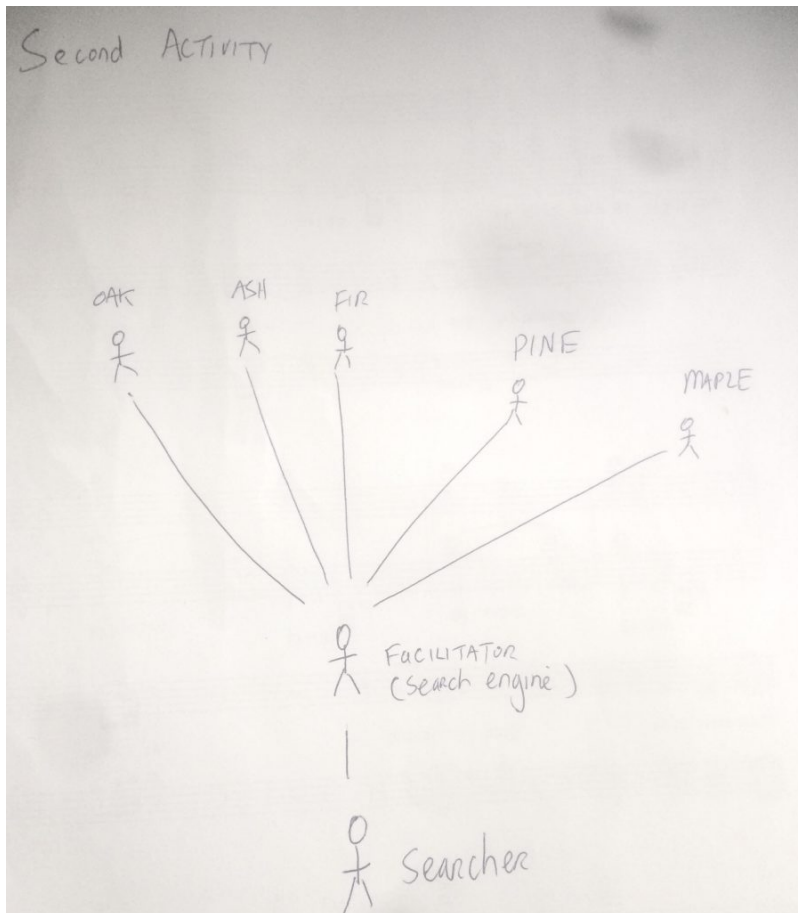 Second ACTIVITY
OAK
ASH
FIR
PINE
MAPLE
FACILITATOR
(Search engine)
Searcher